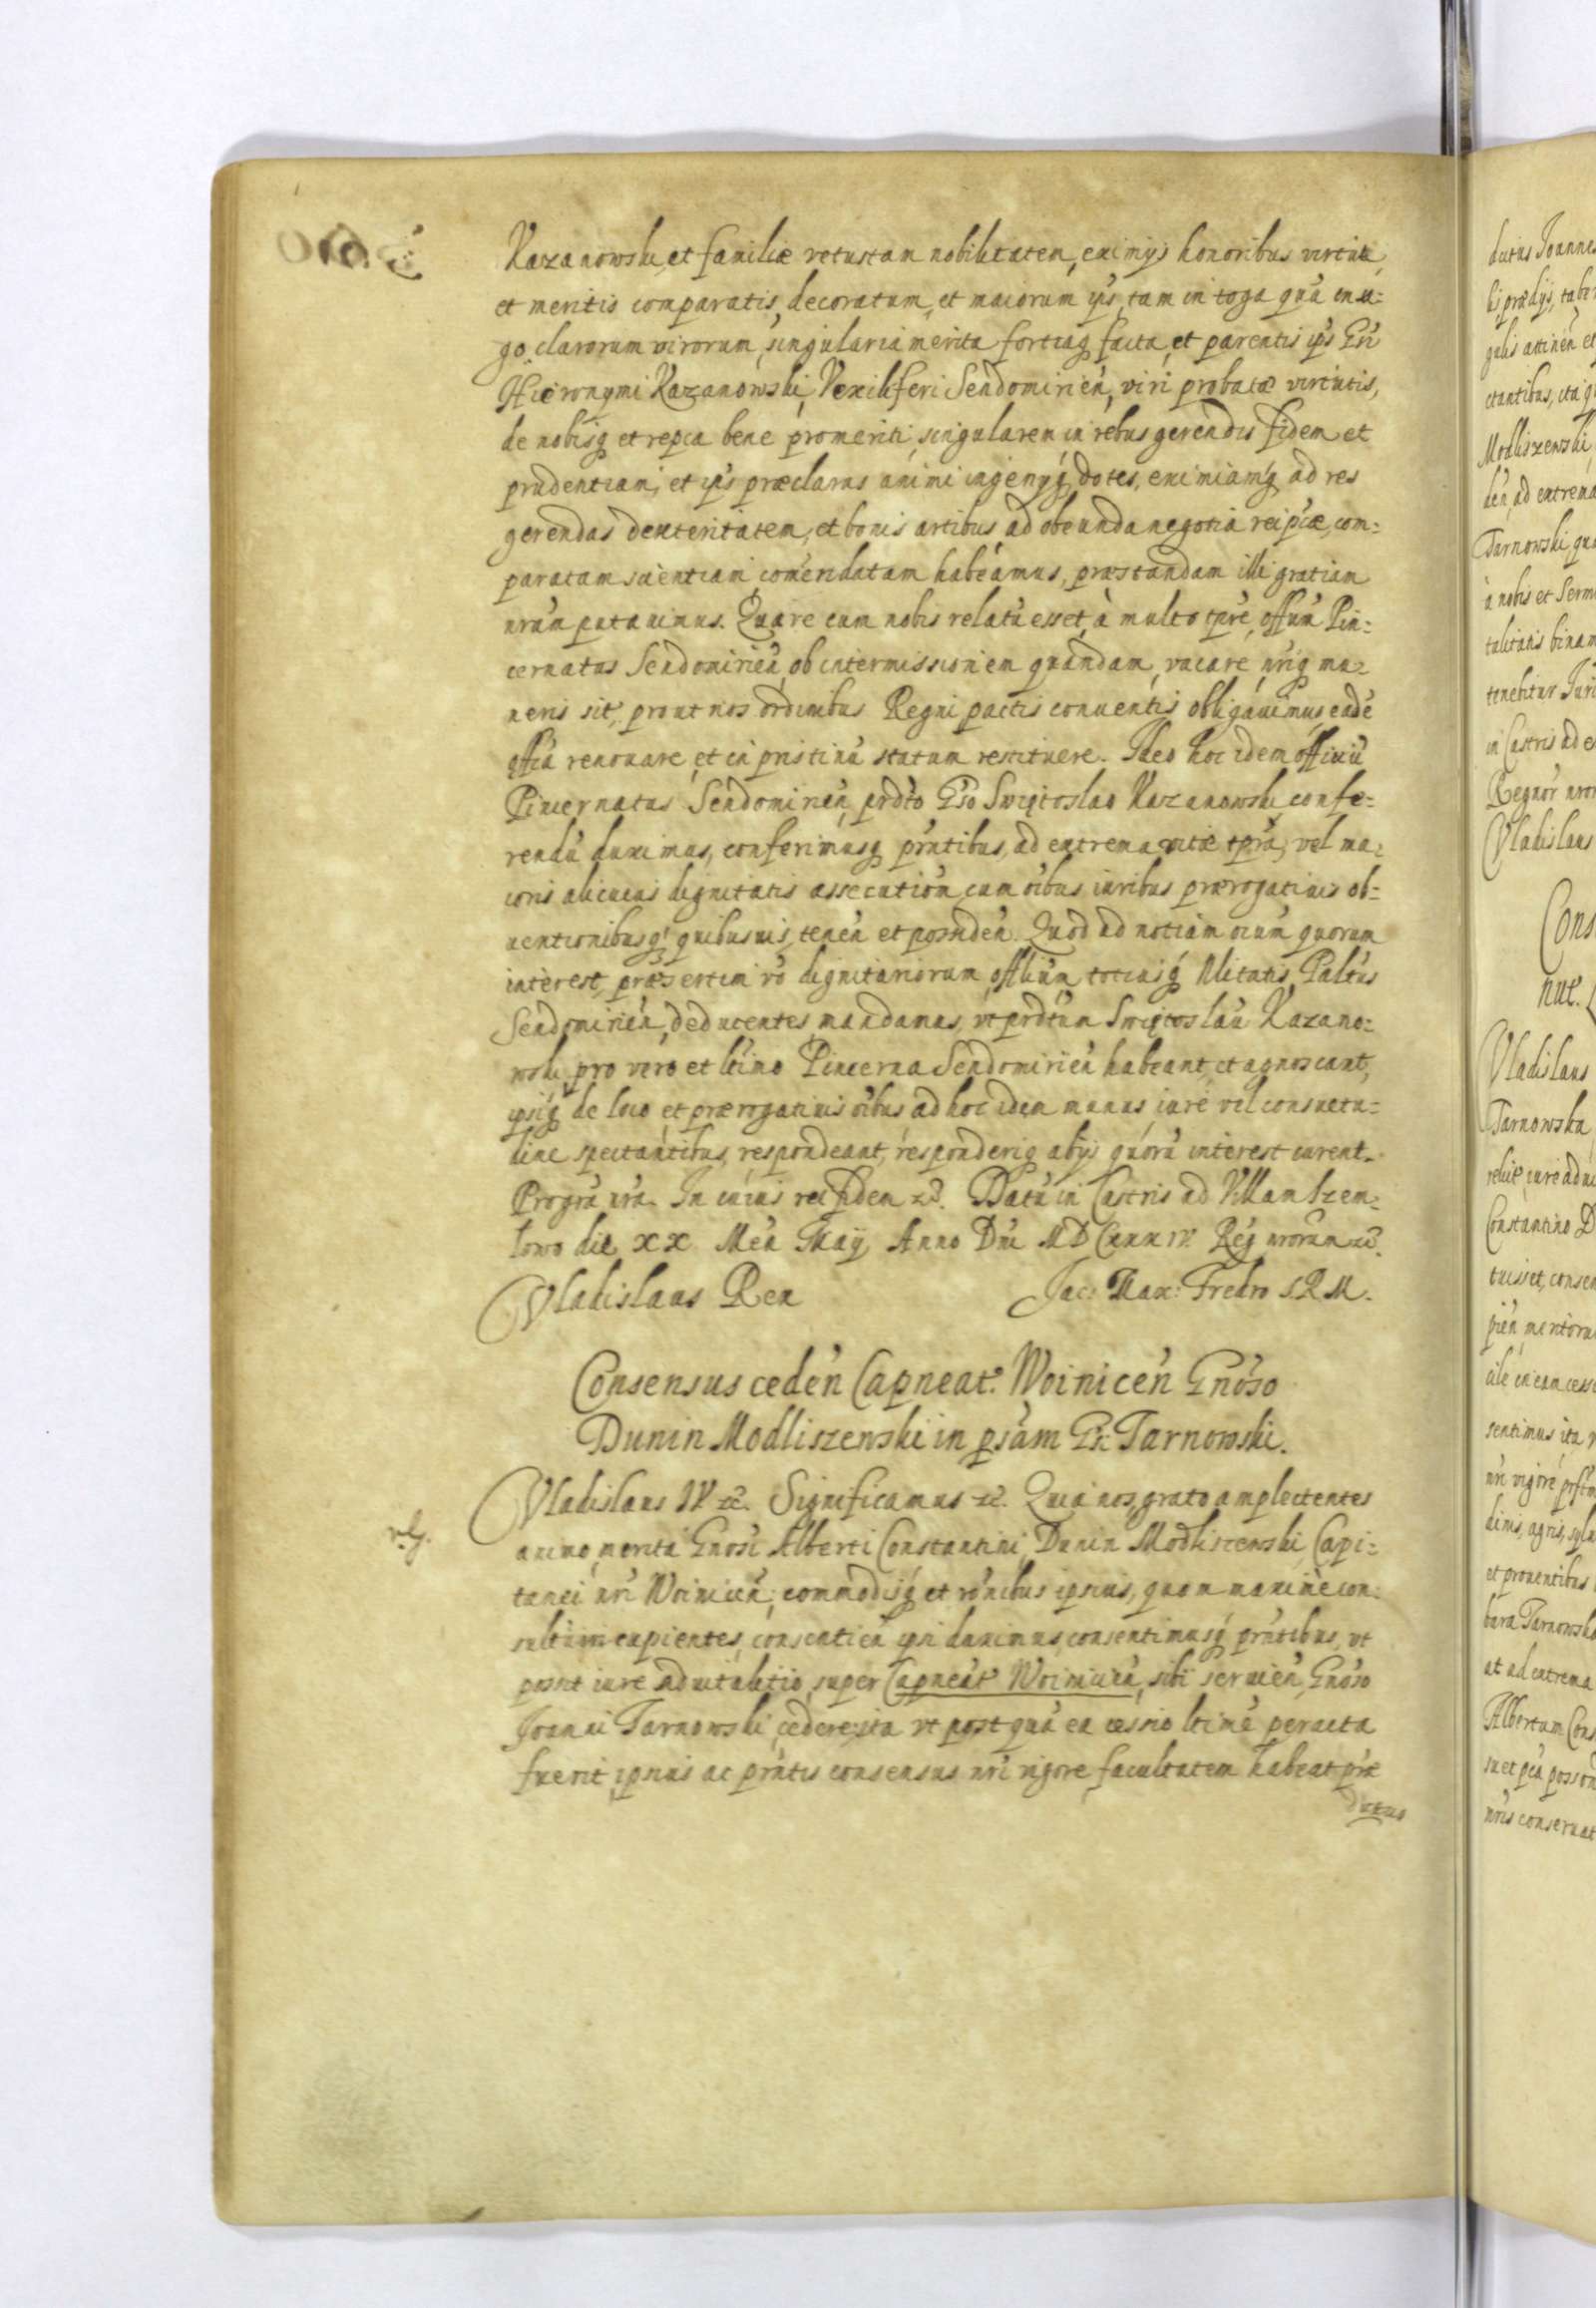 Kazanowski, et familiæ vetustam nobilitatem, eximijs honoribus virtute,
et meritis comparatis, decoratam, et maiorum ip̃s, tam in toga quã in sa=
go. clarorum virorum, singularia merita fortiaq̃ facta, et parentis ip̃s Gñi
Hieronymi Kazanowski, Vexiliferi Sendomirień, viri probatæ virtutis,
de nobisq̃ et repca bene promeriti, singularem in rebus gerendis fidem et
prudentiam, et ip̃s præclaras animi ingenijq̃ dotes, eximiamq̃ ad res
gerendas dexteritatem, et bonis artibus ad obeunda negotia reip̃cæ, com=
paratam scientiam, com̃endatam habeamus, præstandam illi gratiam
nrãm putauimus. Quare cum nobis relatũ esset, à multo tp̃re, offm̃ Pin=
cernatus Sendomirień, ob intermissionem quandam, vacare, nriq̃ mu=
neris sit, prout nos ordinibus Regni pactis conuentis obligauimus, eadẽ
offia renouare, et in pristinũ statum restituere. Ideo hoc idem officiũ
Pincernatus Sendomirień, prdto Gso Swiętoslao Kazanowski confe=
rendũ duximus, conferimusq̃ prñtibus, ad extrema vitæ tp̃ra, vel ma=
ioris alicuius dignitatis assecutioñ, cum oĩbus iuribus prærogatiuis ob=
uentionibusq̃ quibusuis, teneñ et possideñ. Quod ad notiam oium quorum
interest, præsertim vo dignitariorum, officium totiusq̃ Nlitatis Paltus
Sendomirień, deducentes, mandamus, vt prdtum Swiętoslaũ Kazano=
wski pro vero et ltimo Pincerna Sendomirień habeant, et agnoscant,
ipsiq̃ de loco et prærogatiuis oĩbus ad hoc idem munus iure vel consuetu=
dine spectantibus, respondeant, responderiq̃ ab ijs quorũ interest curent.
Pro grã nrã. In cuius rei fidem etc̃. Datũ in Castris ad Villam
die XX Meñ Maij Anno Dñi MDCXXXIV. Reg̃ nrorum etc̃.
Vladislaus Rex Jac: Max: Fredro S.R.M.
Consensus cedeń Capneat. Woiniceń Gnoso
Dunin Modliszewski in psãm Gs. Tarnowski.
Vladislaus IV. etc̃. Significamus etc̃. Quia nos, grato amplectentes
animo, merita Gnosi Alberti Constantini, Dunin Modliszewski, Capi=
tanei nri Woiniceń, commodisq̃ et rõnibus ipsius, quam maximè con=
sultum cupientes, consentień ipsi duximus, consentimusq̃ prñtibus, vt
possit iure aduitalitio, super Capneat Woiniceń, sibi seruień, Gnoso
Joanni Tarnowski cedere, ita vt post quã ea cessio ltimẽ peracta
fuerit, ipsius ac prñtis consensus nri vigore, facultatem habeat præ
dictus